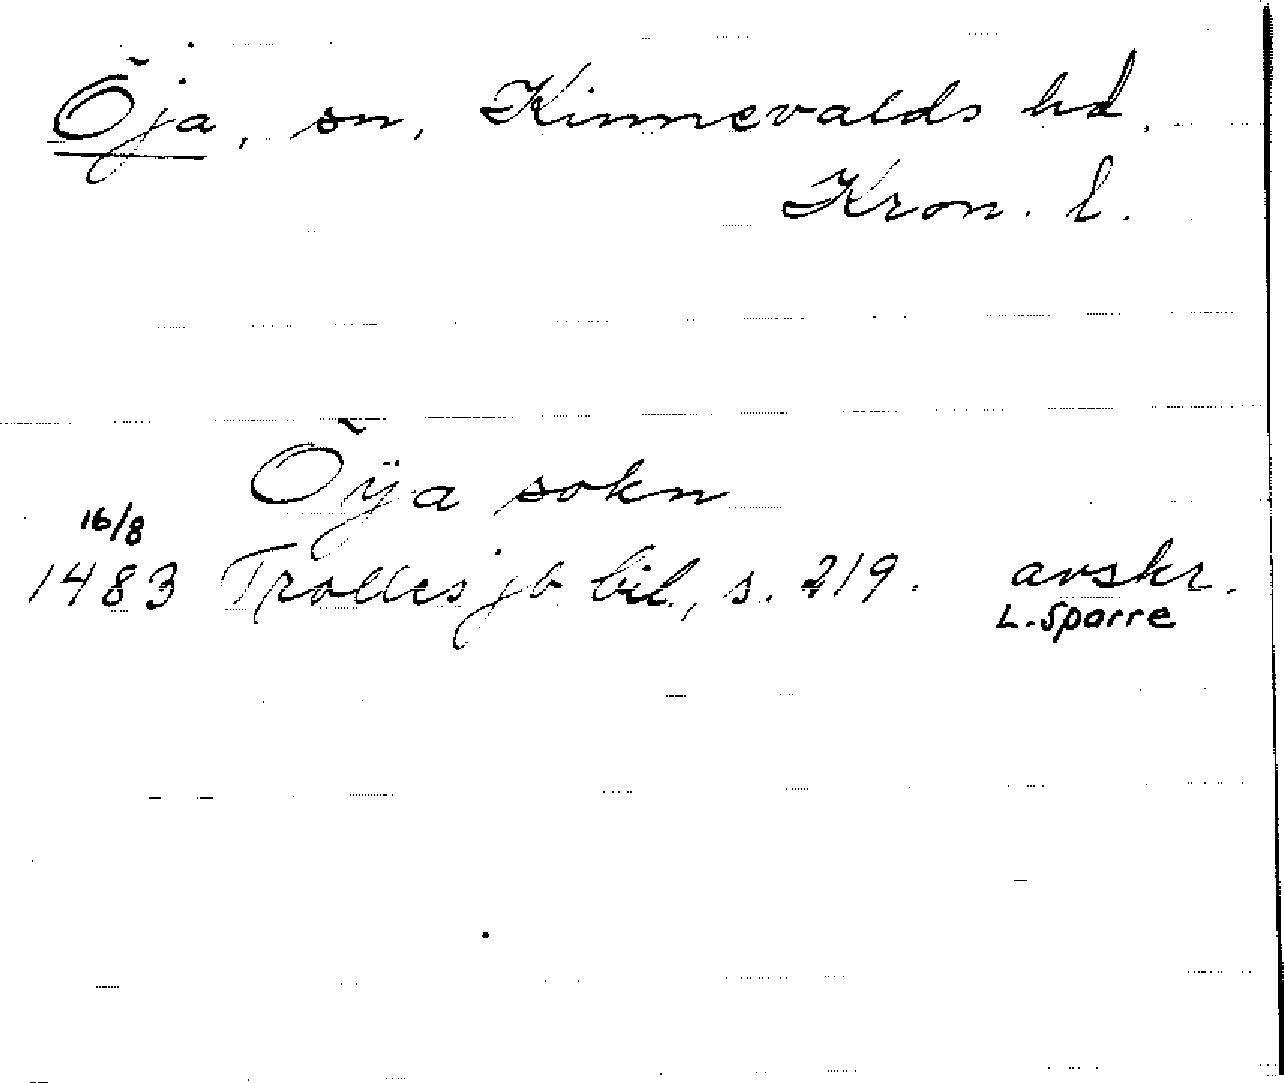 Öja, sn, Kinnevalds hd.
Kron. l.
Öÿa sokn
16/8
1483 Trolles jb bil., s. 219. avskr.
L. Sparre